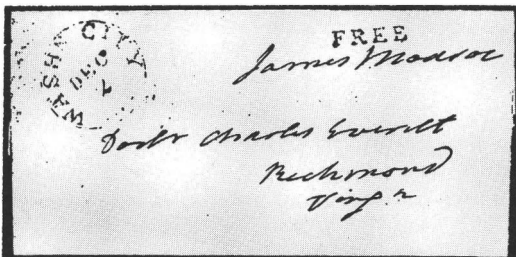 WASHN CITY
DEC
FREE
James Madison
Doctr Charles Everett
Richmond
Virga